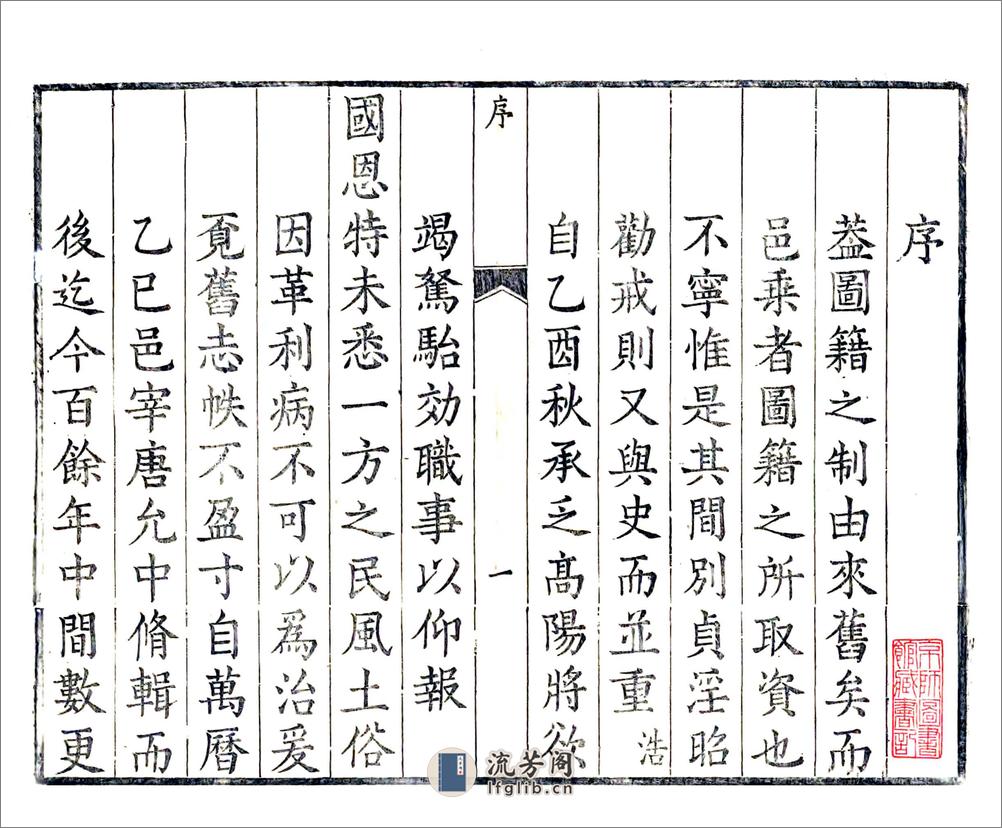 序
葢圖籍之制由來舊矣而
邑乗者圖籍之所取資也
不寧惟是其間別貞淫昭
勸戒則又與史而並重浩
自乙酉秋承乏髙陽將欲
序
一
竭駑駘効職事以仰報
國恩特未悉一方之民風土俗
因革利病不可以爲治爰
覔舊志帙不盈寸自萬曆
乙巳邑宰唐允中脩輯而
後迄今百餘年中間數更
京師圖書
館藏書記
流芳阁
lfglib.cn